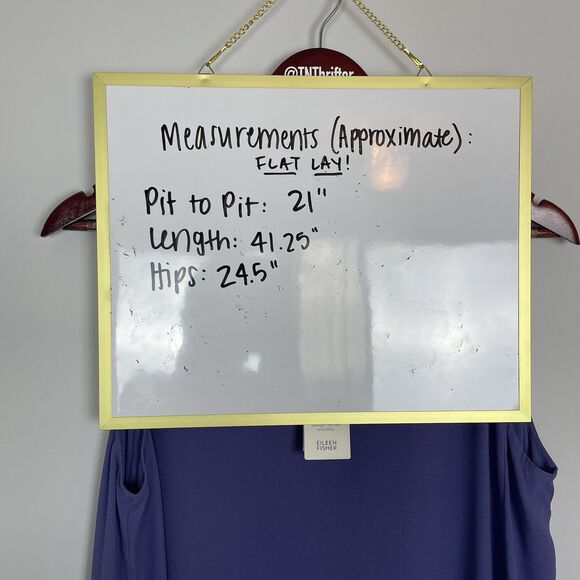 @TNThrifter
Measurements (Approximate):
FLAT LAY!
Pit to Pit: 21"
Length: 41.25"
Hips: 24.5"
EILEEN
FISHER